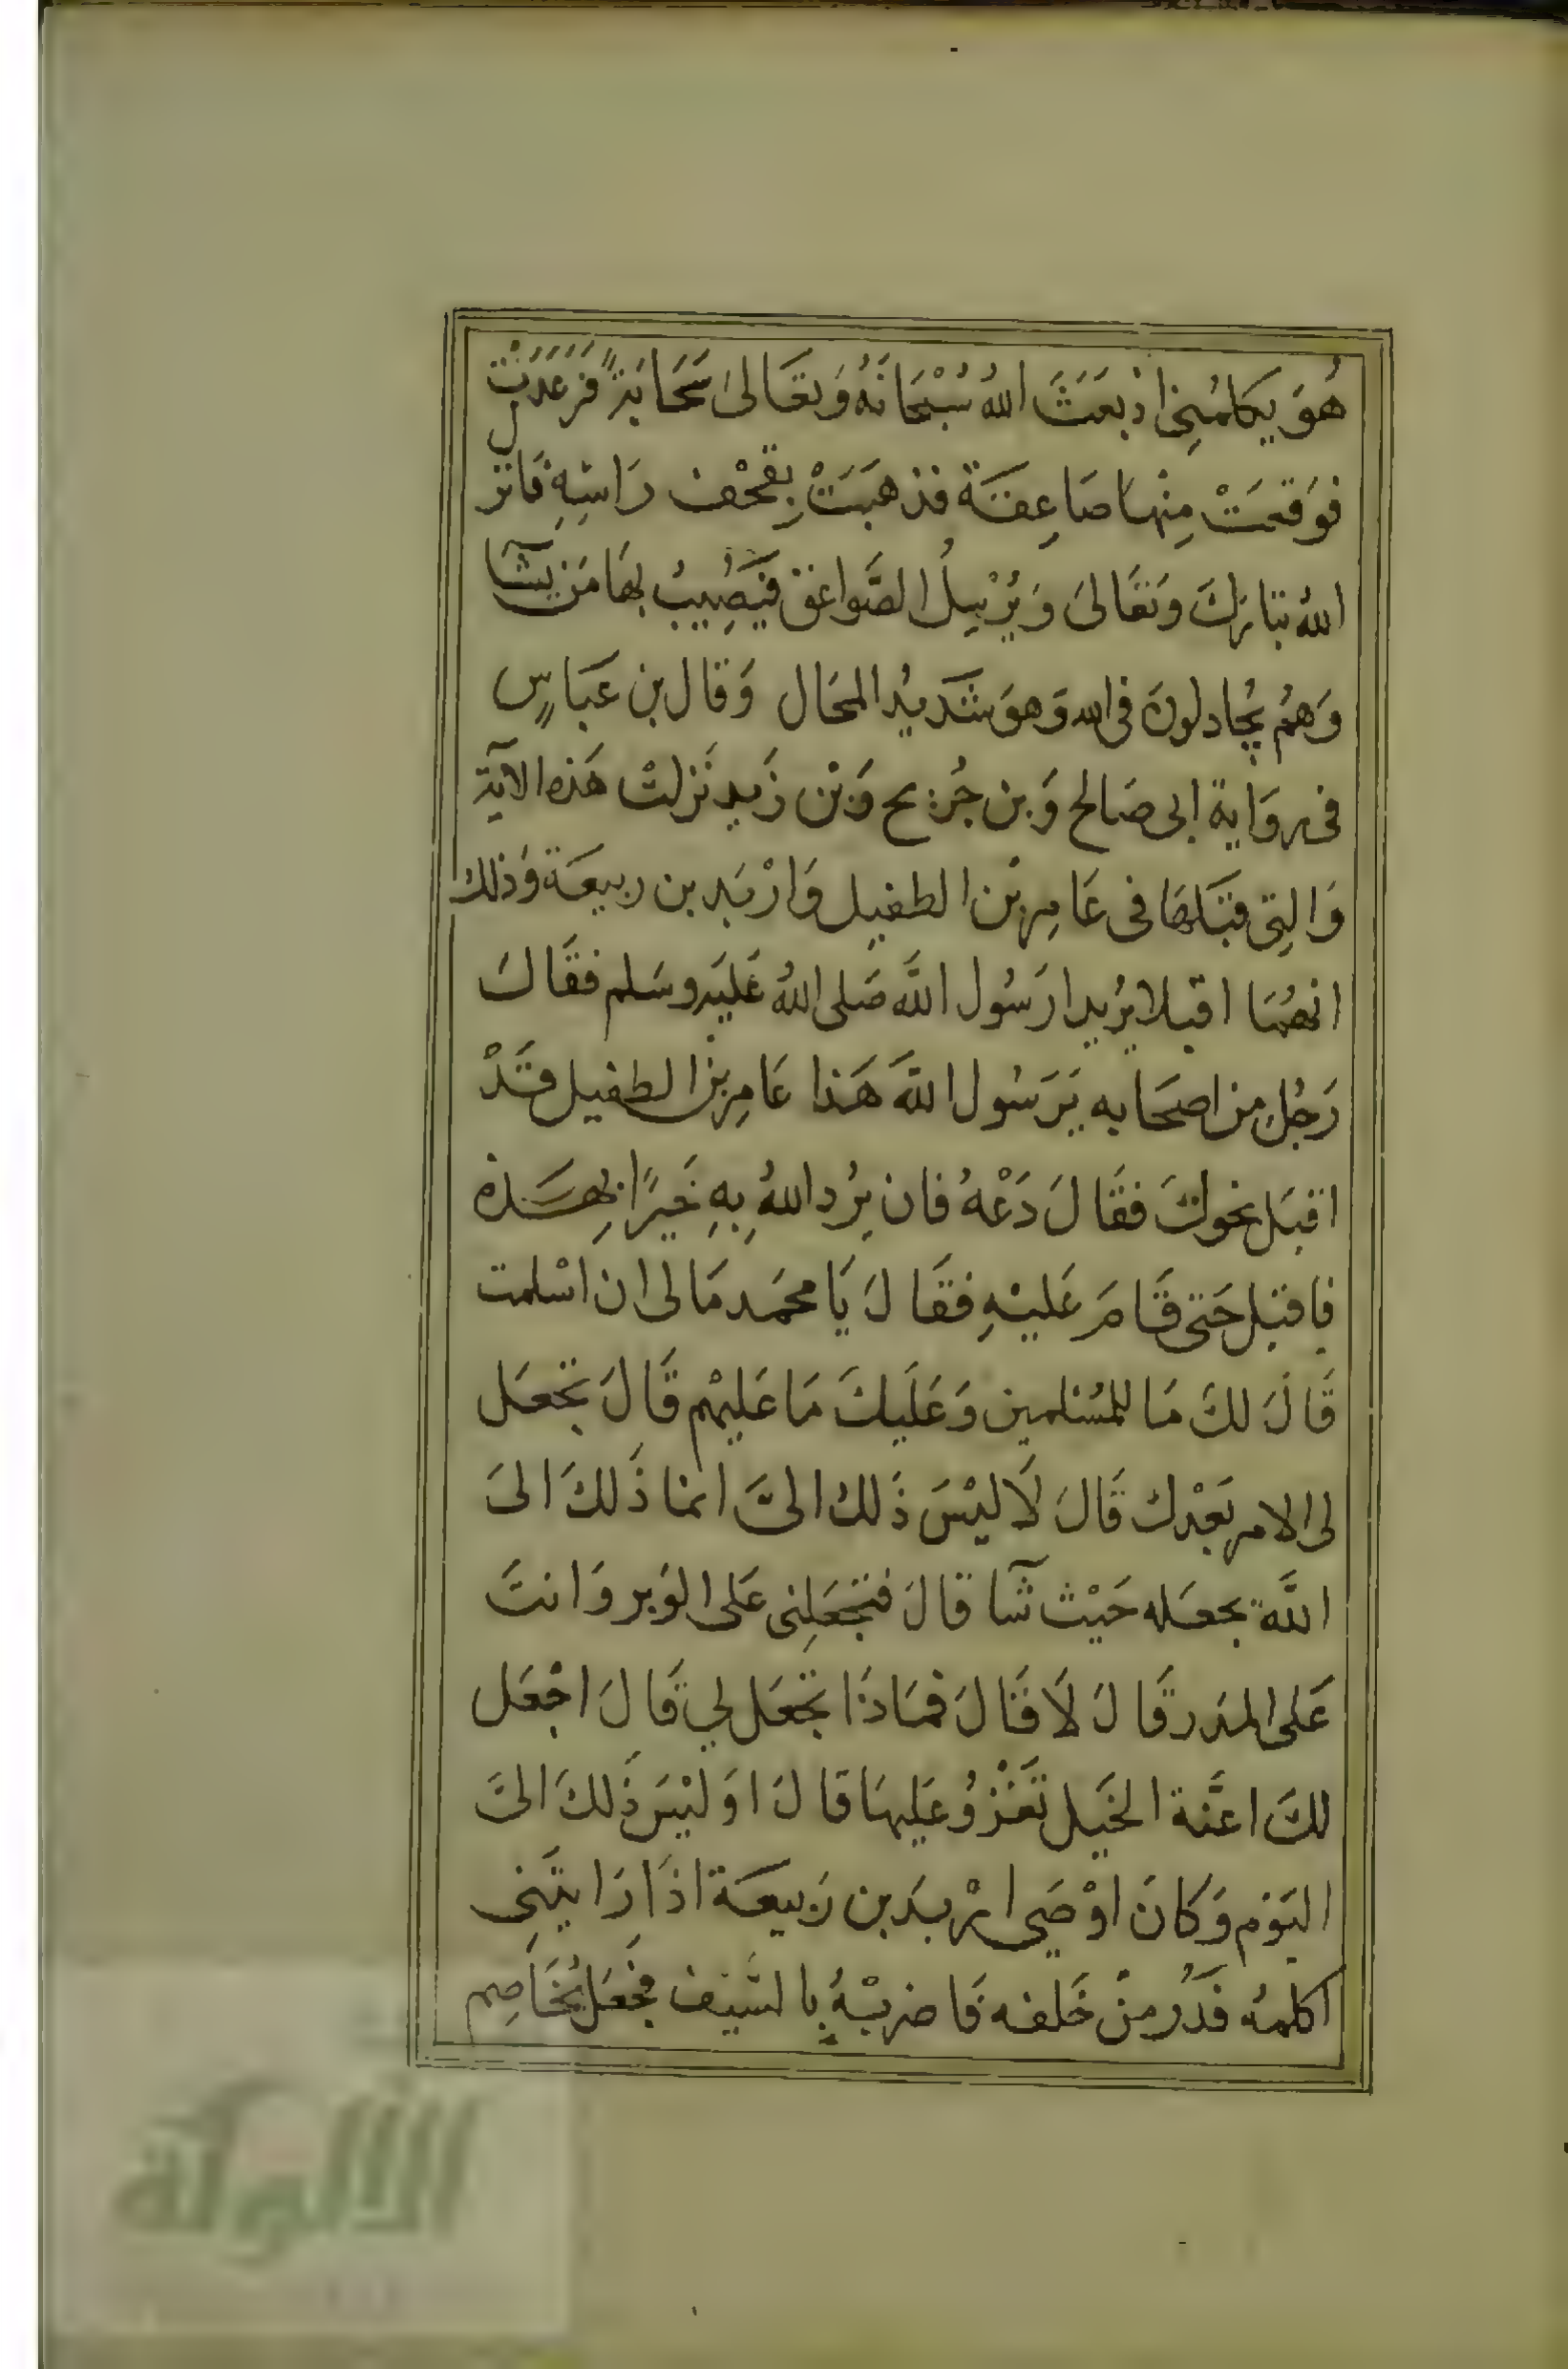 هُوَ يكلمُنِى اذ بعَثَ اللهُ سُبْحَانَهُ وَتعَالىَ سَحَابَة فرَعَدَتْ
فوَقعَتْ مِنْهَا صَاعِقَة فذهبَتْ بِقحْف رَاسِهِ فَانزل
اللهُ تبَارَكَ وَتعَالىَ وَيُرْسِلُ الصَّواعق فيُصِيبُ بهَا مَن يشآ
وَهمُ يُجادلونَ فى الله وَهوَ شَديدُ المحَال وَقال بن عَباسٍ
فى روَاية ابى صَالح وَبن جُريج وَبْن زَيد نَزلتْ هَذه الآية
وَالتِى قبَلهَا فى عَامِر بْن الطفيل وَارْبَد بن ربيعَة وَذلك
انهُمَا اقبلا يُريدا رَسُول اللَّه صَلى اللهُ عَليْه وسَلم فقَالَ
رَجُل مِن اصحَابه يَرَسُول اللَّه هَذا عَامِر بْن الطفيل قَدْ
اقبَل نحوكَ فقَالَ دَعْهُ فان يُرد اللهُ بِهِ خَيرًا بهَذه
فاقبَل حَتى قَامَ عَليْهِ فقَالَ يَا محمَد مَا لى ان اسْلمت
قَالَ لكَ مَا للمُسْلمين وَعَلَيكَ مَا عَليهْم قَالَ تجعَل
لى الامر بَعْدك قَالَ لَا ليْسَ ذَلك الىَّ انما ذَلكَ الىَ
اللَّه يجعَله حَيْث شآ قالَ فتجْعَلِنى عَلى الوَبر وَانتَ
عَلى المدَر قَالَ لَا قَالَ فمَاذَا تجْعَل لي قَالَ اجْعَل
لكَ اعنَّة الخَيل تَغْزُو عَليهَا قالَ اوَ ليْسَ ذَلكَ الىَّ
اليَوْم وَكانَ اوْصَى ارْبدَ بن رَبيعَة اذَا رَايتَنِى
اكلمهُ فَدُر مِنْ خَلفه فَاضربْهُ بالسَّيف فجَعَل يُخَاصِم